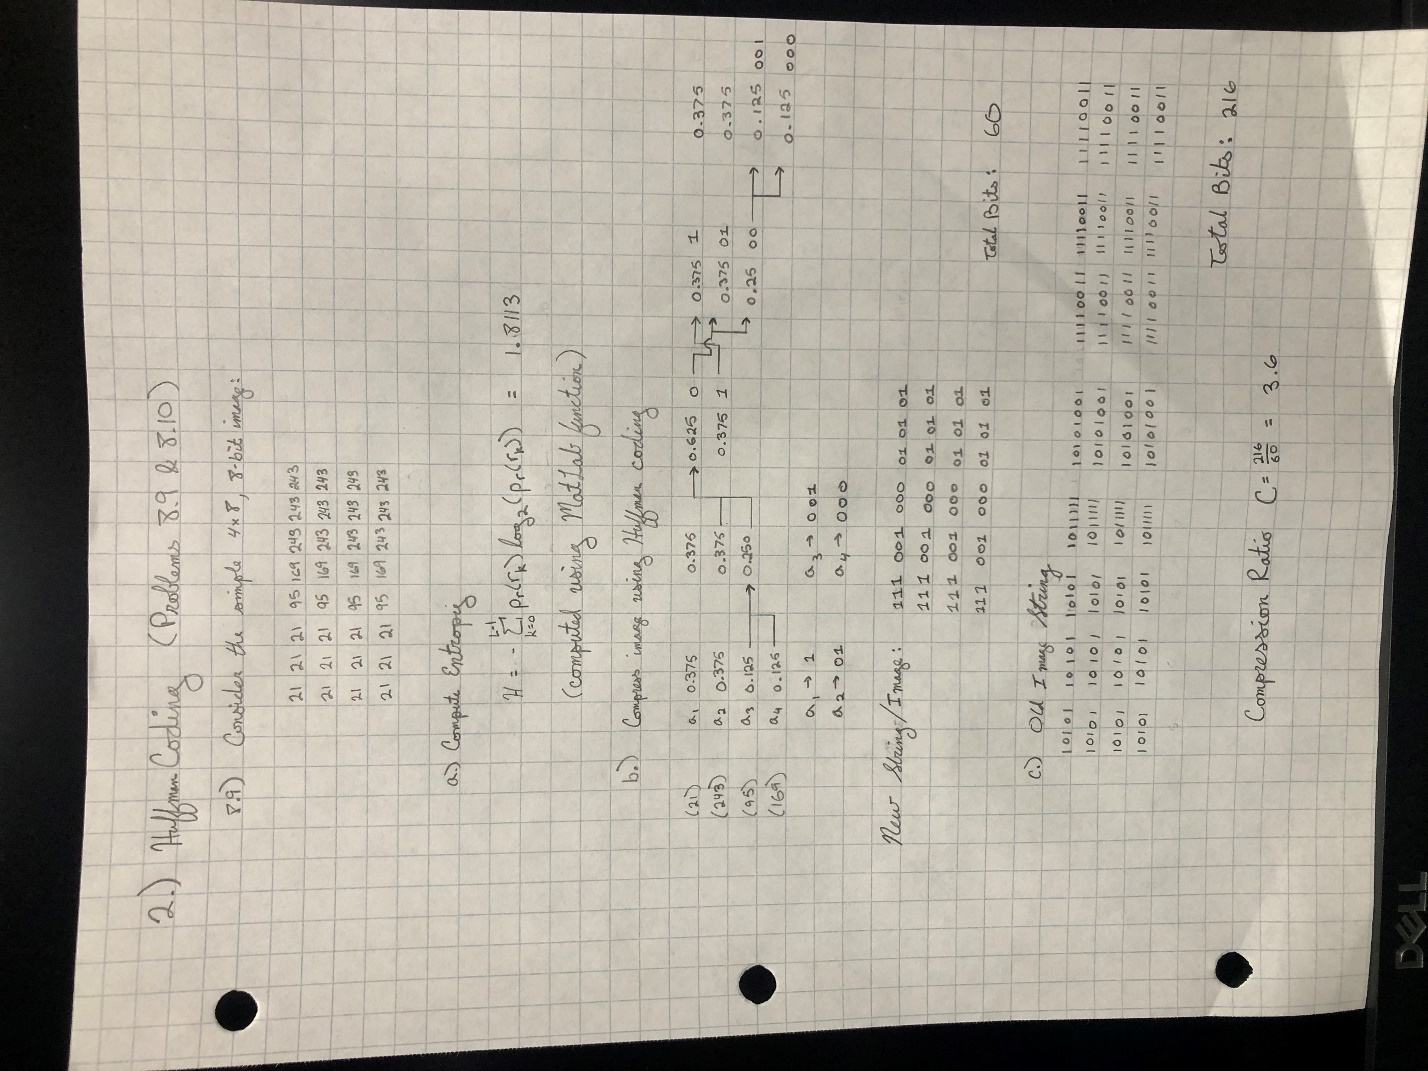 2.) Huffman Coding (Problems 8.9 & 8.10)
8.9) Consider the simple 4x8, 8-bit image:
21 21 21 95 169 243 243 243
21 21 21 95 169 243 243 243
21 21 21 95 169 243 243 243
21 21 21 95 169 243 243 243
a.) Compute Entropy
H = - Σ_{k=0}^{L-1} Pr(r_k) log_2(Pr(r_k)) = 1.8113
(computed using MatLab function)
b.) Compress image using Huffman coding
(21) a1 0.375 0.375 → 0.625 0 → 0.375 1 0.375
(243) a2 0.375 0.375 0.375 1 → 0.375 01 0.375
(95) a3 0.125 → 0.250 → 0.25 00 → 0.125 001
(169) a4 0.125 → 0.125 000
a1 → 1 a3 → 001
a2 → 01 a4 → 000
New String/Image: 111 001 000 01 01 01
111 001 000 01 01 01
111 001 000 01 01 01
111 001 000 01 01 01
Total Bits: 60
c.) Old Image String
10101 10101 10101 1011111 10101001 11110011 11110011 11110011
10101 10101 10101 1011111 10101001 11110011 11110011 11110011
10101 10101 10101 1011111 10101001 11110011 11110011 11110011
10101 10101 10101 1011111 10101001 11110011 11110011 11110011
Total Bits: 216
Compression Ratio C = 216/60 = 3.6
DELL